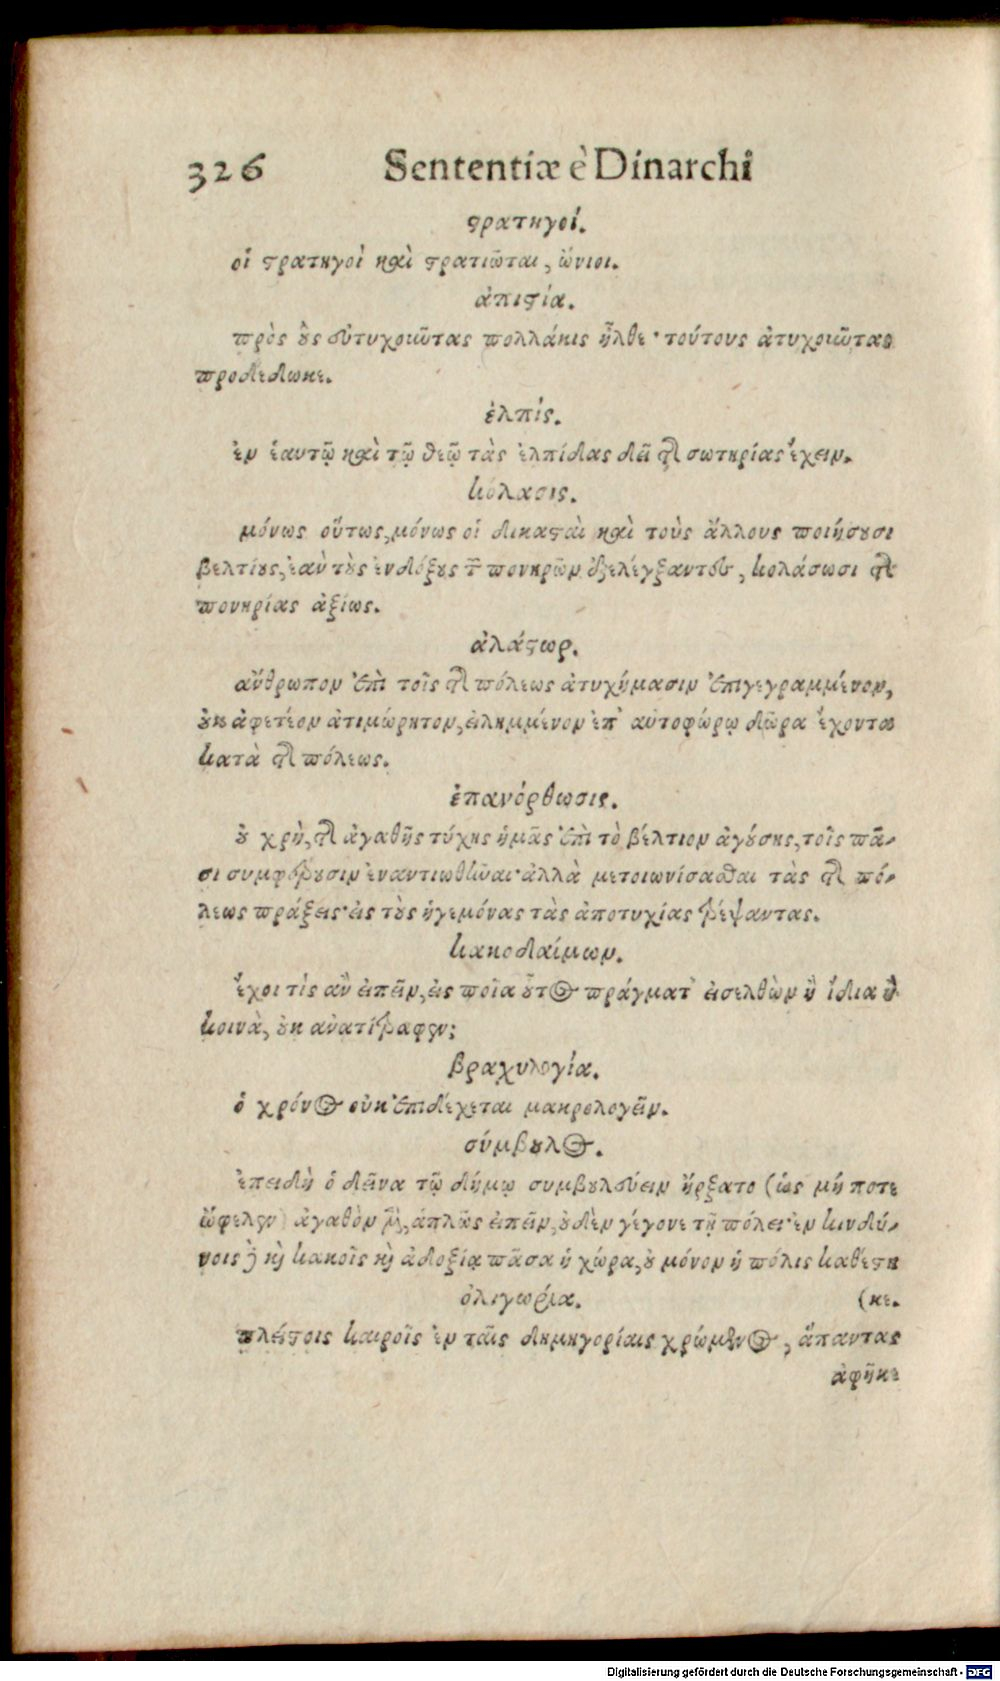 326 Sententiæ è Dinarchi
ϛρατηγοί.
οἱ ϛρατηγοὶ καὶ ϛρατιῶται, ὤνιοι.
ἀπιϛία.
πρὸς οὓς εὐτυχοιῶτας πολλάκις ἦλθε· τούτους ἀτυχοιῶτας
προδέδωκε.
ἐλπίς.
ἐν ἑαυτῷ καὶ τῷ θεῷ τὰς ἐλπίδας δεῖ τῆς σωτηρίας ἔχειν.
κόλασις.
μόνως οὕτως, μόνως οἱ δικαϛαὶ καὶ τοὺς ἄλλους ποιήσουσι
βελτίους, ἐὰν τοὺς ἐνδόξους τῶν πονηρῶν ἐξελέγξαντες, κολάσωσι τῆς
πονηρίας ἀξίως.
ἀλάϛωρ.
ἄνθρωπον ἐπὶ τοῖς τῆς πόλεως ἀτυχήμασιν ἐπιγεγραμμένον,
οὐκ ἀφετέον ἀτιμώρητον, εἰλημμένον ἐπ' αὐτοφώρῳ δῶρα ἔχοντα
κατὰ τῆς πόλεως.
ἐπανόρθωσις.
οὐ χρὴ, τῆς ἀγαθῆς τύχης ἡμᾶς ἐπὶ τὸ βέλτιον ἀγούσης, τοῖς πᾶ-
σι συμφέρουσιν ἐναντιωθῆναι· ἀλλὰ μετοιωνίσασθαι τὰς τῆς πό-
λεως πράξεις· εἰς τοὺς ἡγεμόνας τὰς ἀποτυχίας τρέψαντας.
κακοδαίμων.
ἔχοι τίς ἂν εἰπεῖν, εἰς ποῖα οὗτος πράγματ' εἰσελθὼν ἢ ἴδια ἢ
κοινὰ, οὐκ ἀνατέτραφεν;
βραχυλογία.
ὁ χρόνος οὐκ ἐπιδέχεται μακρολογεῖν.
σύμβουλος.
ἐπειδὴ ὁ δεῖνα τῷ δήμῳ συμβουλεύειν ἤρξατο (ὡς μή ποτε
ὤφελεν) ἀγαθὸν μὲν, ἁπλῶς εἰπεῖν, οὐδὲν γέγονε τῇ πόλει· ἐν κινδύ-
νοις δὲ καὶ κακοῖς καὶ ἀδοξίᾳ πᾶσα ἡ χώρα, οὐ μόνον ἡ πόλις καθέϛη
ὀλιγωρία. (κε.
πλείϛοις καιροῖς ἐν ταῖς δημηγορίαις χρώμενος, ἅπαντας
ἀφῆκε
Digitalisierung gefördert durch die Deutsche Forschungsgemeinschaft - DFG